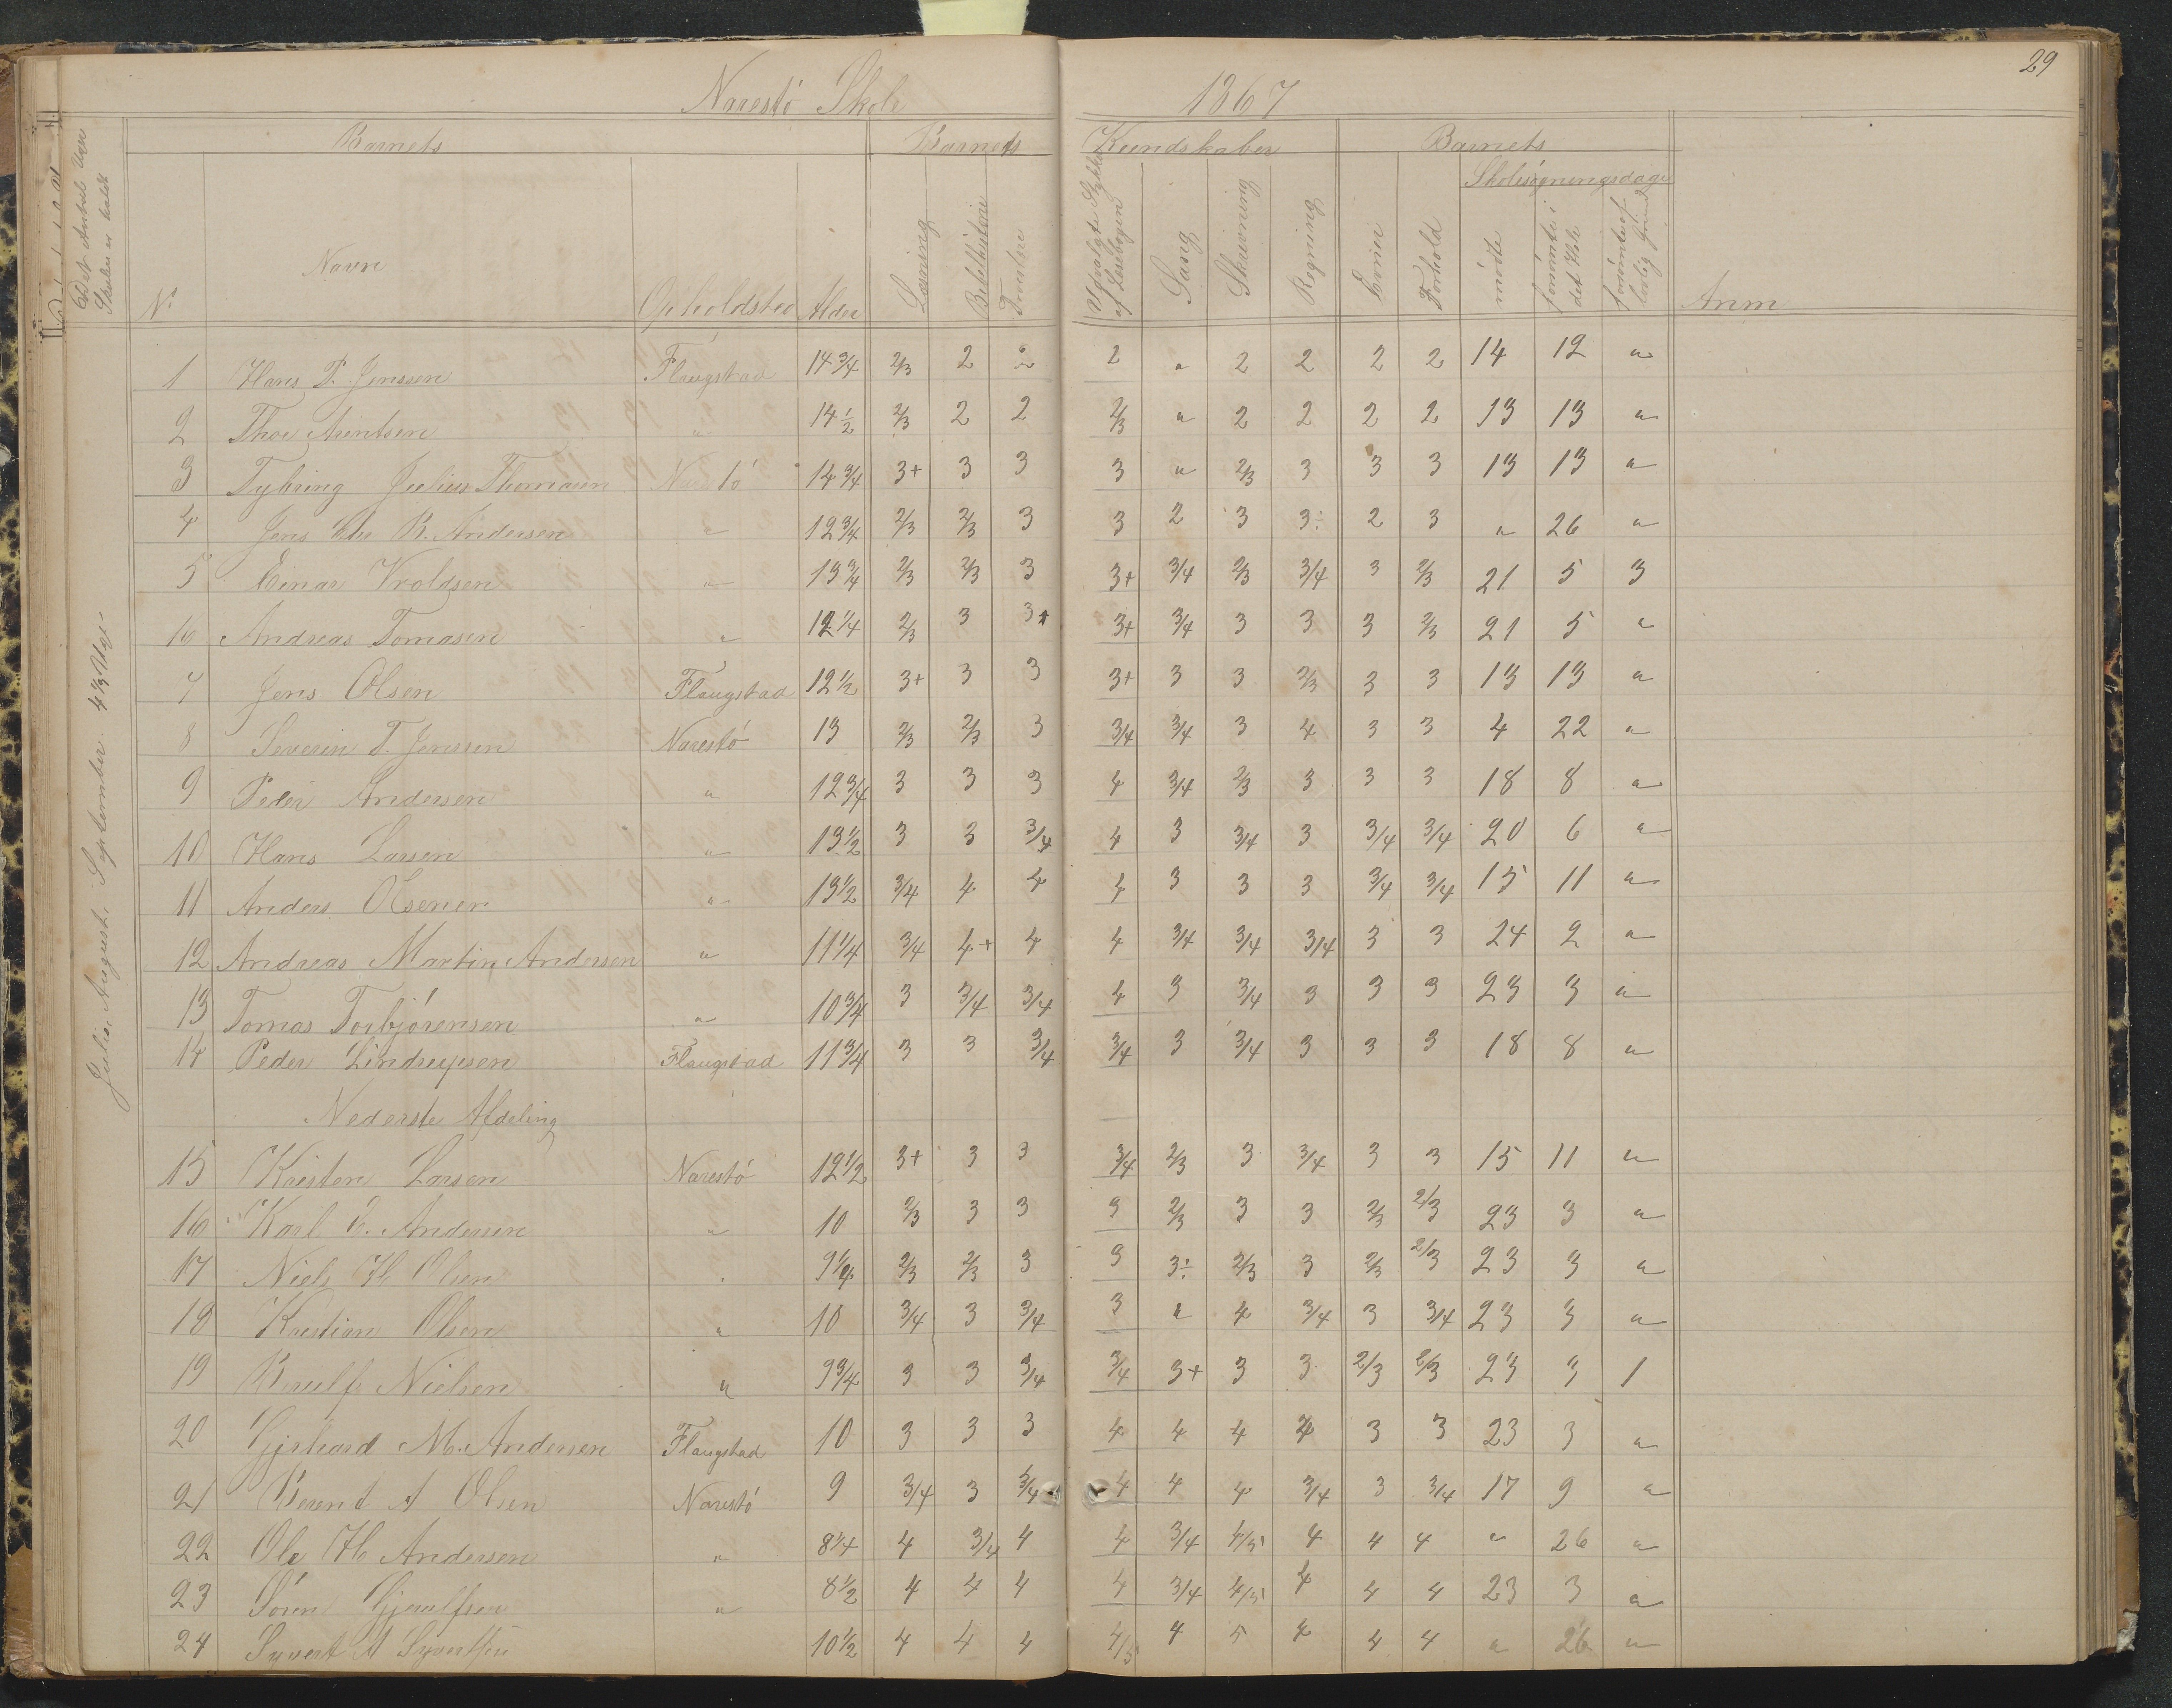 29
Narestö Skole 1867
Barnets Barnets Kundskaber Barnets
Skolesøgningsdage
Det Antal Uger Skolen er holdt
No Navn Opholdsted Alder Læsning Bibelhistorie Troeslære Udvalgte Stykker af Læsebogen Sang Skrivning Regning Evner Forhold mødte forsømte i det Hele forsømte af lovlig Grund Anm
Juli, August, September 4⅓ Uge
1 Hans P. Jenssen Flaugstad 14 3/4 2/3 2 2 2 " 2 2 2 2 14 12 "
2 Thor Arentsen " 14 1/2 2/3 2 2 2/3 " 2 2 2 2 13 13 "
3 Tybring Julius Thomasen Narestö 14 3/4 3+ 3 3 3 " 2/3 3 3 3 13 13 "
4 Jens Chr B. Andersen " 12 3/4 2/3 2/3 3 3 2 3 3÷ 2 3 " 26 "
5 Einar Vroldsen " 13 3/4 2/3 2/3 3 3+ 3/4 2/3 3/4 3 2/3 21 5 3
6 Andreas Tomasen " 12 1/4 2/3 3 3+ 3+ 3/4 3 3 3 2/3 21 5 "
7 Jens Olsen Flaugstad 12 1/2 3+ 3 3 3+ 3 3 2/3 3 3 13 13 "
8 Severin T. Jenssen Narestö 13 2/3 2/3 3 3/4 3/4 3 4 3 3 4 22 "
9 Peder Andersen " 12 3/4 3 3 3 4 3/4 2/3 3 3 3 18 8 "
10 Hans Larsen " 13 1/2 3 3 3/4 4 3 3/4 3 3/4 3/4 20 6 "
11 Anders Olsen " 13 1/2 3/4 4 4 4 3 3 3 3/4 3/4 15 11 "
12 Andreas Martin Andersen " 11 1/4 3/4 4+ 4 4 3/4 3/4 3/4 3 3 24 2 "
13 Tomas Torbjörensen " 10 3/4 3 3/4 3/4 4 3 3/4 3 3 3 23 3 "
14 Peder Lindrupsen Flaugstad 11 3/4 3 3 3/4 3/4 3 3/4 3 3 3 18 8 "
Nederste Afdeling
15 Kristen Larsen Narestö 12 1/2 3+ 3 3 3/4 2/3 3 3/4 3 3 15 11 "
16 Karl E. Andersen " 10 2/3 3 3 3 2/3 3 3 2/3 2/3 23 3 "
17 Niels H Olsen " 9 1/4 2/3 2/3 3 3 3÷ 2/3 3 2/3 2/3 23 3 "
18 Kristian Olsen " 10 3/4 3 3/4 3 " 4 3/4 3 3/4 23 3 "
19 Nielsen " 9 3/4 3 3 3/4 3/4 3+ 3 3 2/3 2/3 23 3 1
20 Gjerhard M. Andersen Flaugstad 10 3 3 3 4 4 4 4 3 3 23 3 "
21 Berent A Olsen Narestö 9 3/4 3 3/4 4 4 4 3/4 3 3/4 17 9 "
22 Ole H Andersen " 8 1/4 4 3/4 4 4 3/4 4/5 4 4 4 " 26 "
23 Sören Gjerulfsen " 8 1/2 4 4 4 4 3/4 4/5 4 4 4 23 3 "
24 Syvert A Syvertsen 10 1/2 4 4 4 4/5 4 5 4 4 4 " 26 "